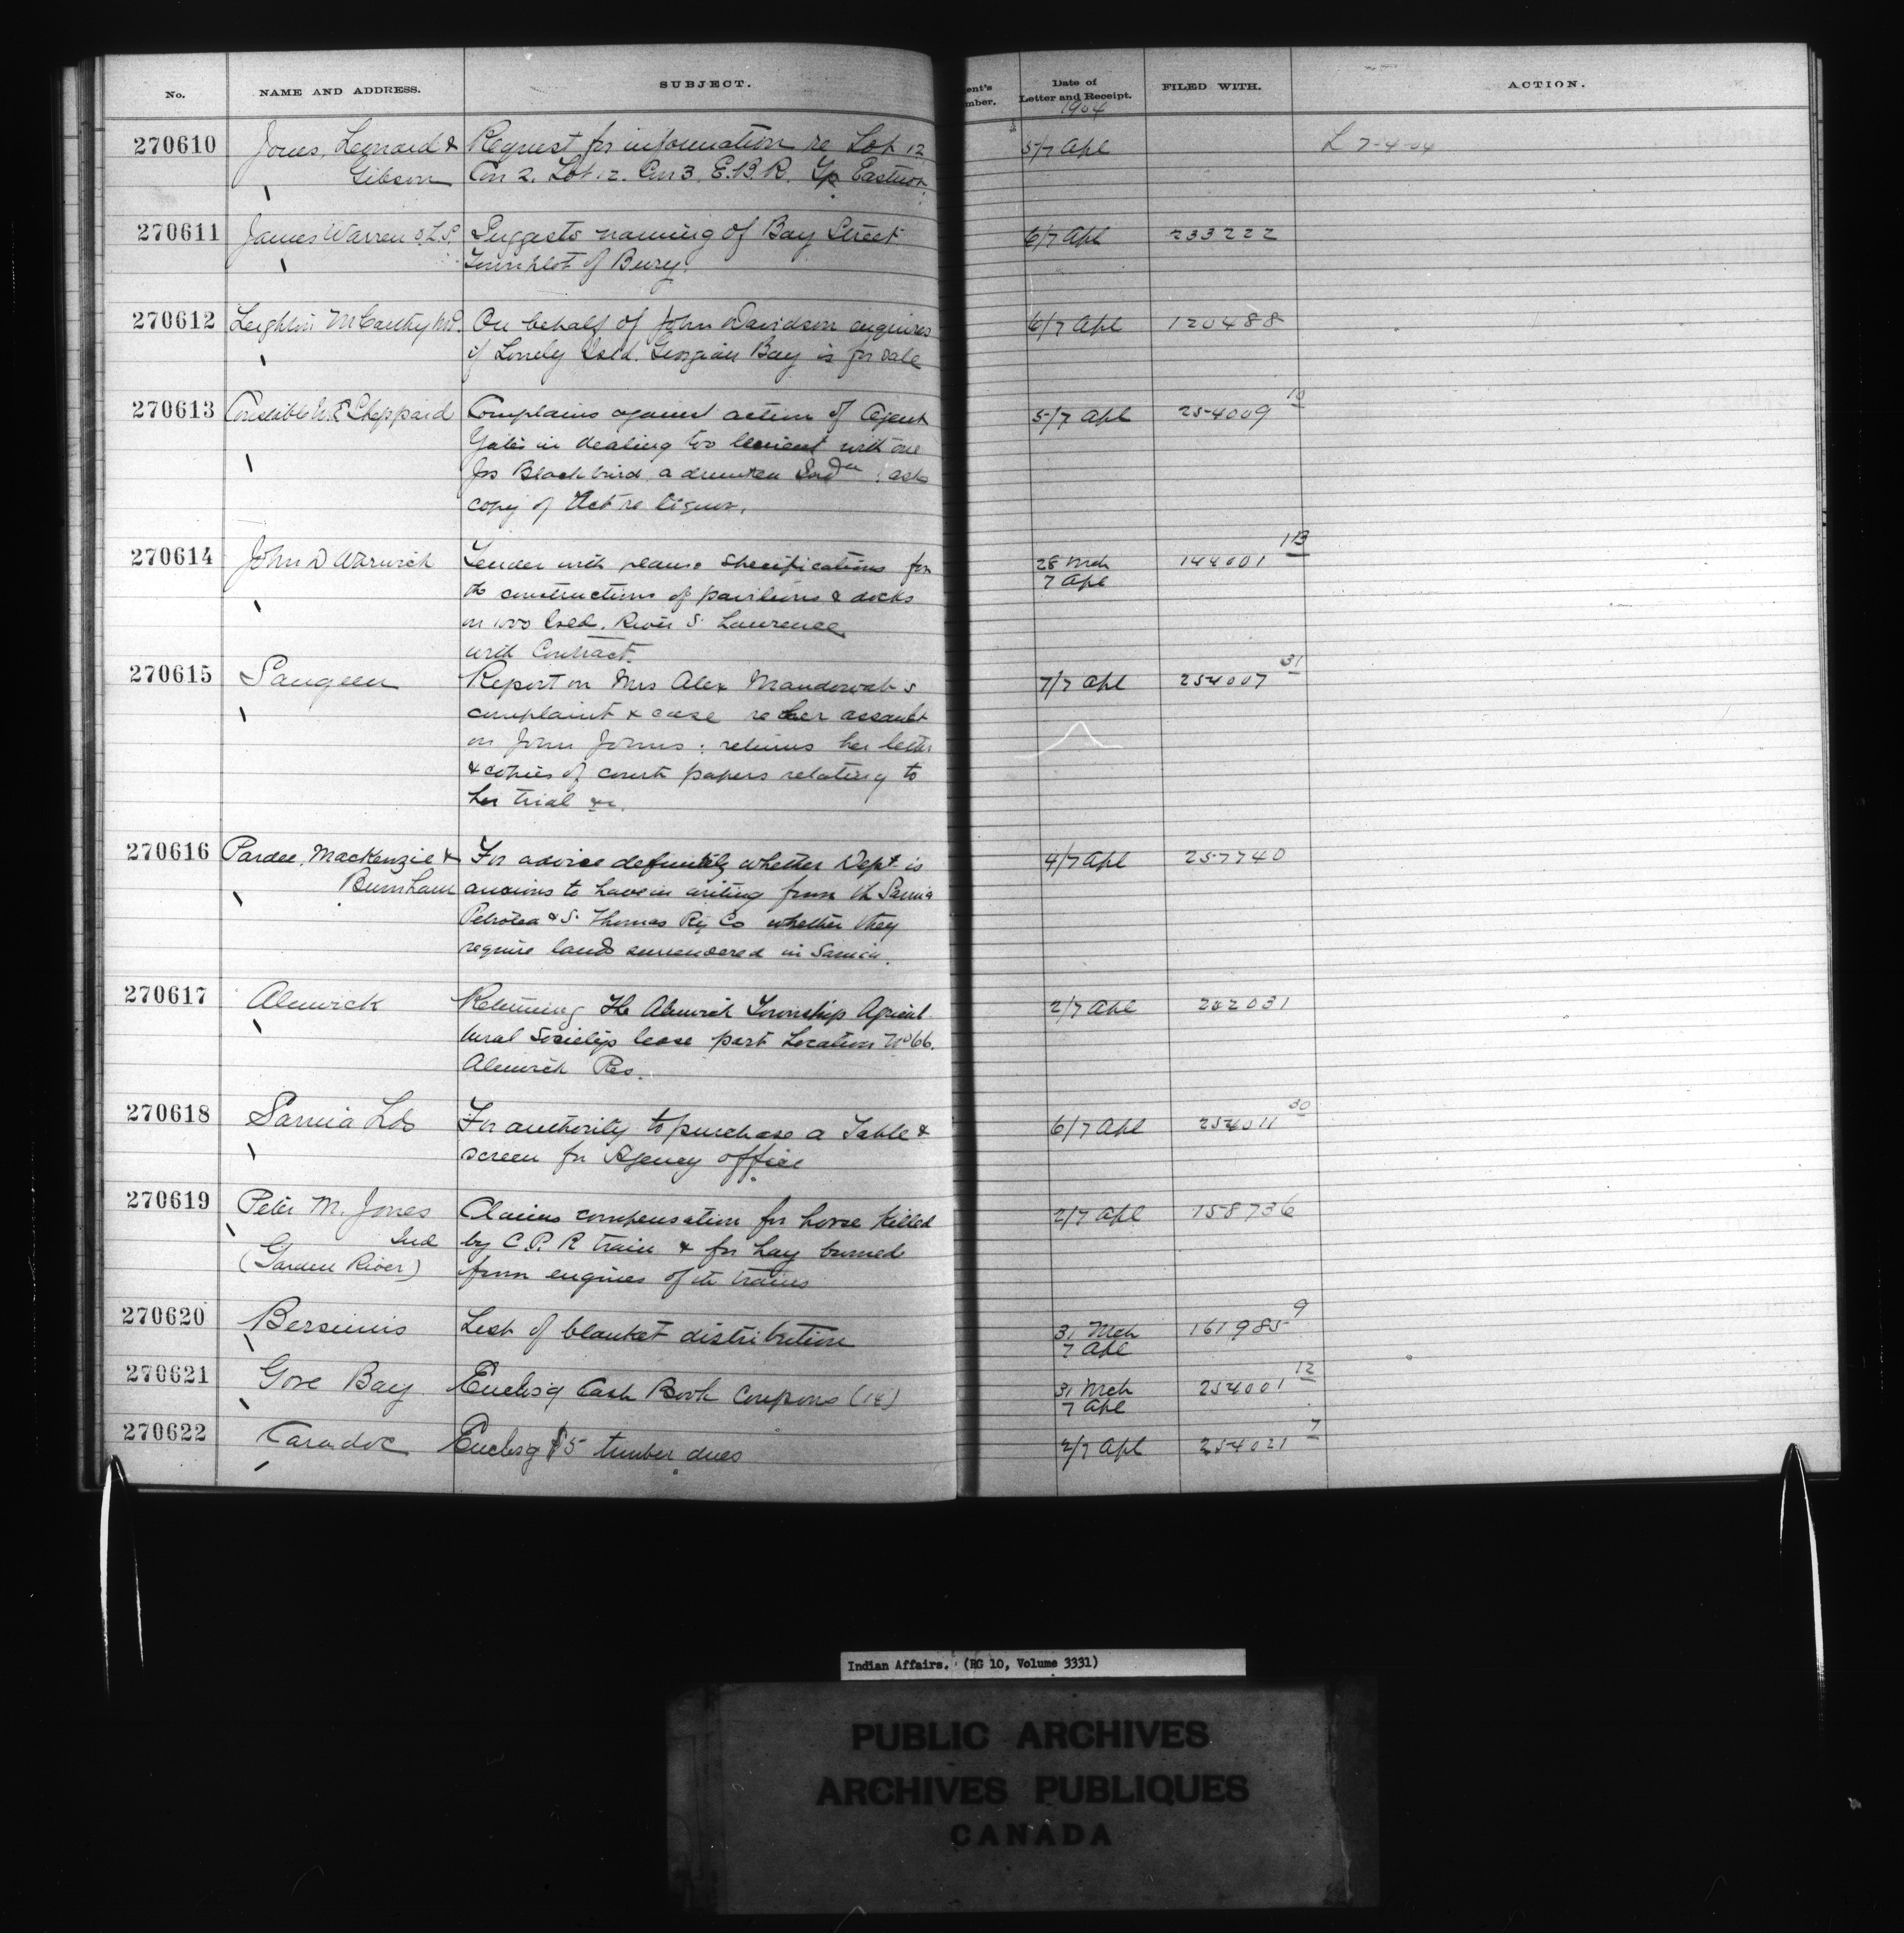 No.
NAME AND ADDRESS.
SUBJECT.
ent's
mber.
Date of
Letter and Receipt.
1904
FILED WITH.
ACTION.
270610 Jones, Leonard & Request for information re Lot 12 5/7 Apl L 7-4-04
Gibson Con 2. Lot 12. Con 3. E.B.R. Tp Eastnor.
270611 James Warren O.L.S. Suggests naming of Bay Street 6/7 Apl 233222
Townplot of Bury.
270612 Leighton McCarthy M.P. On behalf of John Davidson enquires 6/7 Apl 120488
if Lonely Isld. Georgian Bay is for sale
270613 Constable W.E. Sheppard Complains against action of Agent 5/7 Apl 254009 10
Yates in dealing too lenient with one
Jos Blackbird a drunken Indn : asks
copy of Act re liquor.
270614 John D Warwick Tender with plans & specifications for 28 Mch 144001 113
the constructions of pavilions & docks 7 Apl
in 1000 Isld. River St Lawrence
with Contract.
270615 Saugeen Report on Mrs Alex Mandowab's 7/7 Apl 254007 31
complaint & case re her assault
on John Johns : returns her letter
& copies of court papers relating to
her trial &c.
270616 Pardee, MacKenzie & For advice definitely whether Dept is 4/7 Apl 257740
Burnham anxious to have in writing from th Sarnia
Petrolea & St Thomas Ry Co whether they
require land surrendered in Sarnia.
270617 Alnwick Returning The Alnwick Township Agricul 2/7 Apl 202031
tural Society's lease part Location No 66.
Alnwick Res.
270618 Sarnia Lds For authority to purchase a Table & 6/7 Apl 254011 30
screen for Agency office
270619 Peter M. Jones Claims compensation for horse killed 2/7 Apl 158736
Ind by C.P.R train & for hay burned
(Garden River) from engines of th trains
270620 Bersimis List of blanket distribution 31 Mch 161985 9
7 Apl
270621 Gore Bay Enclosg Cash Book Coupons (18) 31 Mch 254001 12
7 Apl
270622 Caradoc Enclosg $5 timber dues 2/7 Apl 254021 7
Indian Affairs. (RG 10, Volume 3331)
PUBLIC ARCHIVES
ARCHIVES PUBLIQUES
CANADA